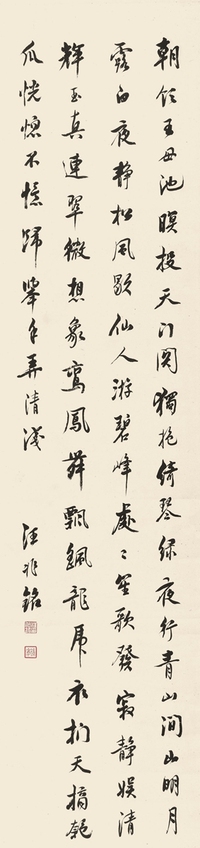 朝飲王母池暝投天門關獨抱綺琴綠夜行青山間山明月
露白夜靜松風歇仙人游碧峰處々笙歌發寂靜娛清
輝玉真連翠微想象鸞鳳舞飄颻龍虎衣捫天摘匏
瓜恍惚不憶歸舉手弄清淺
汪兆銘